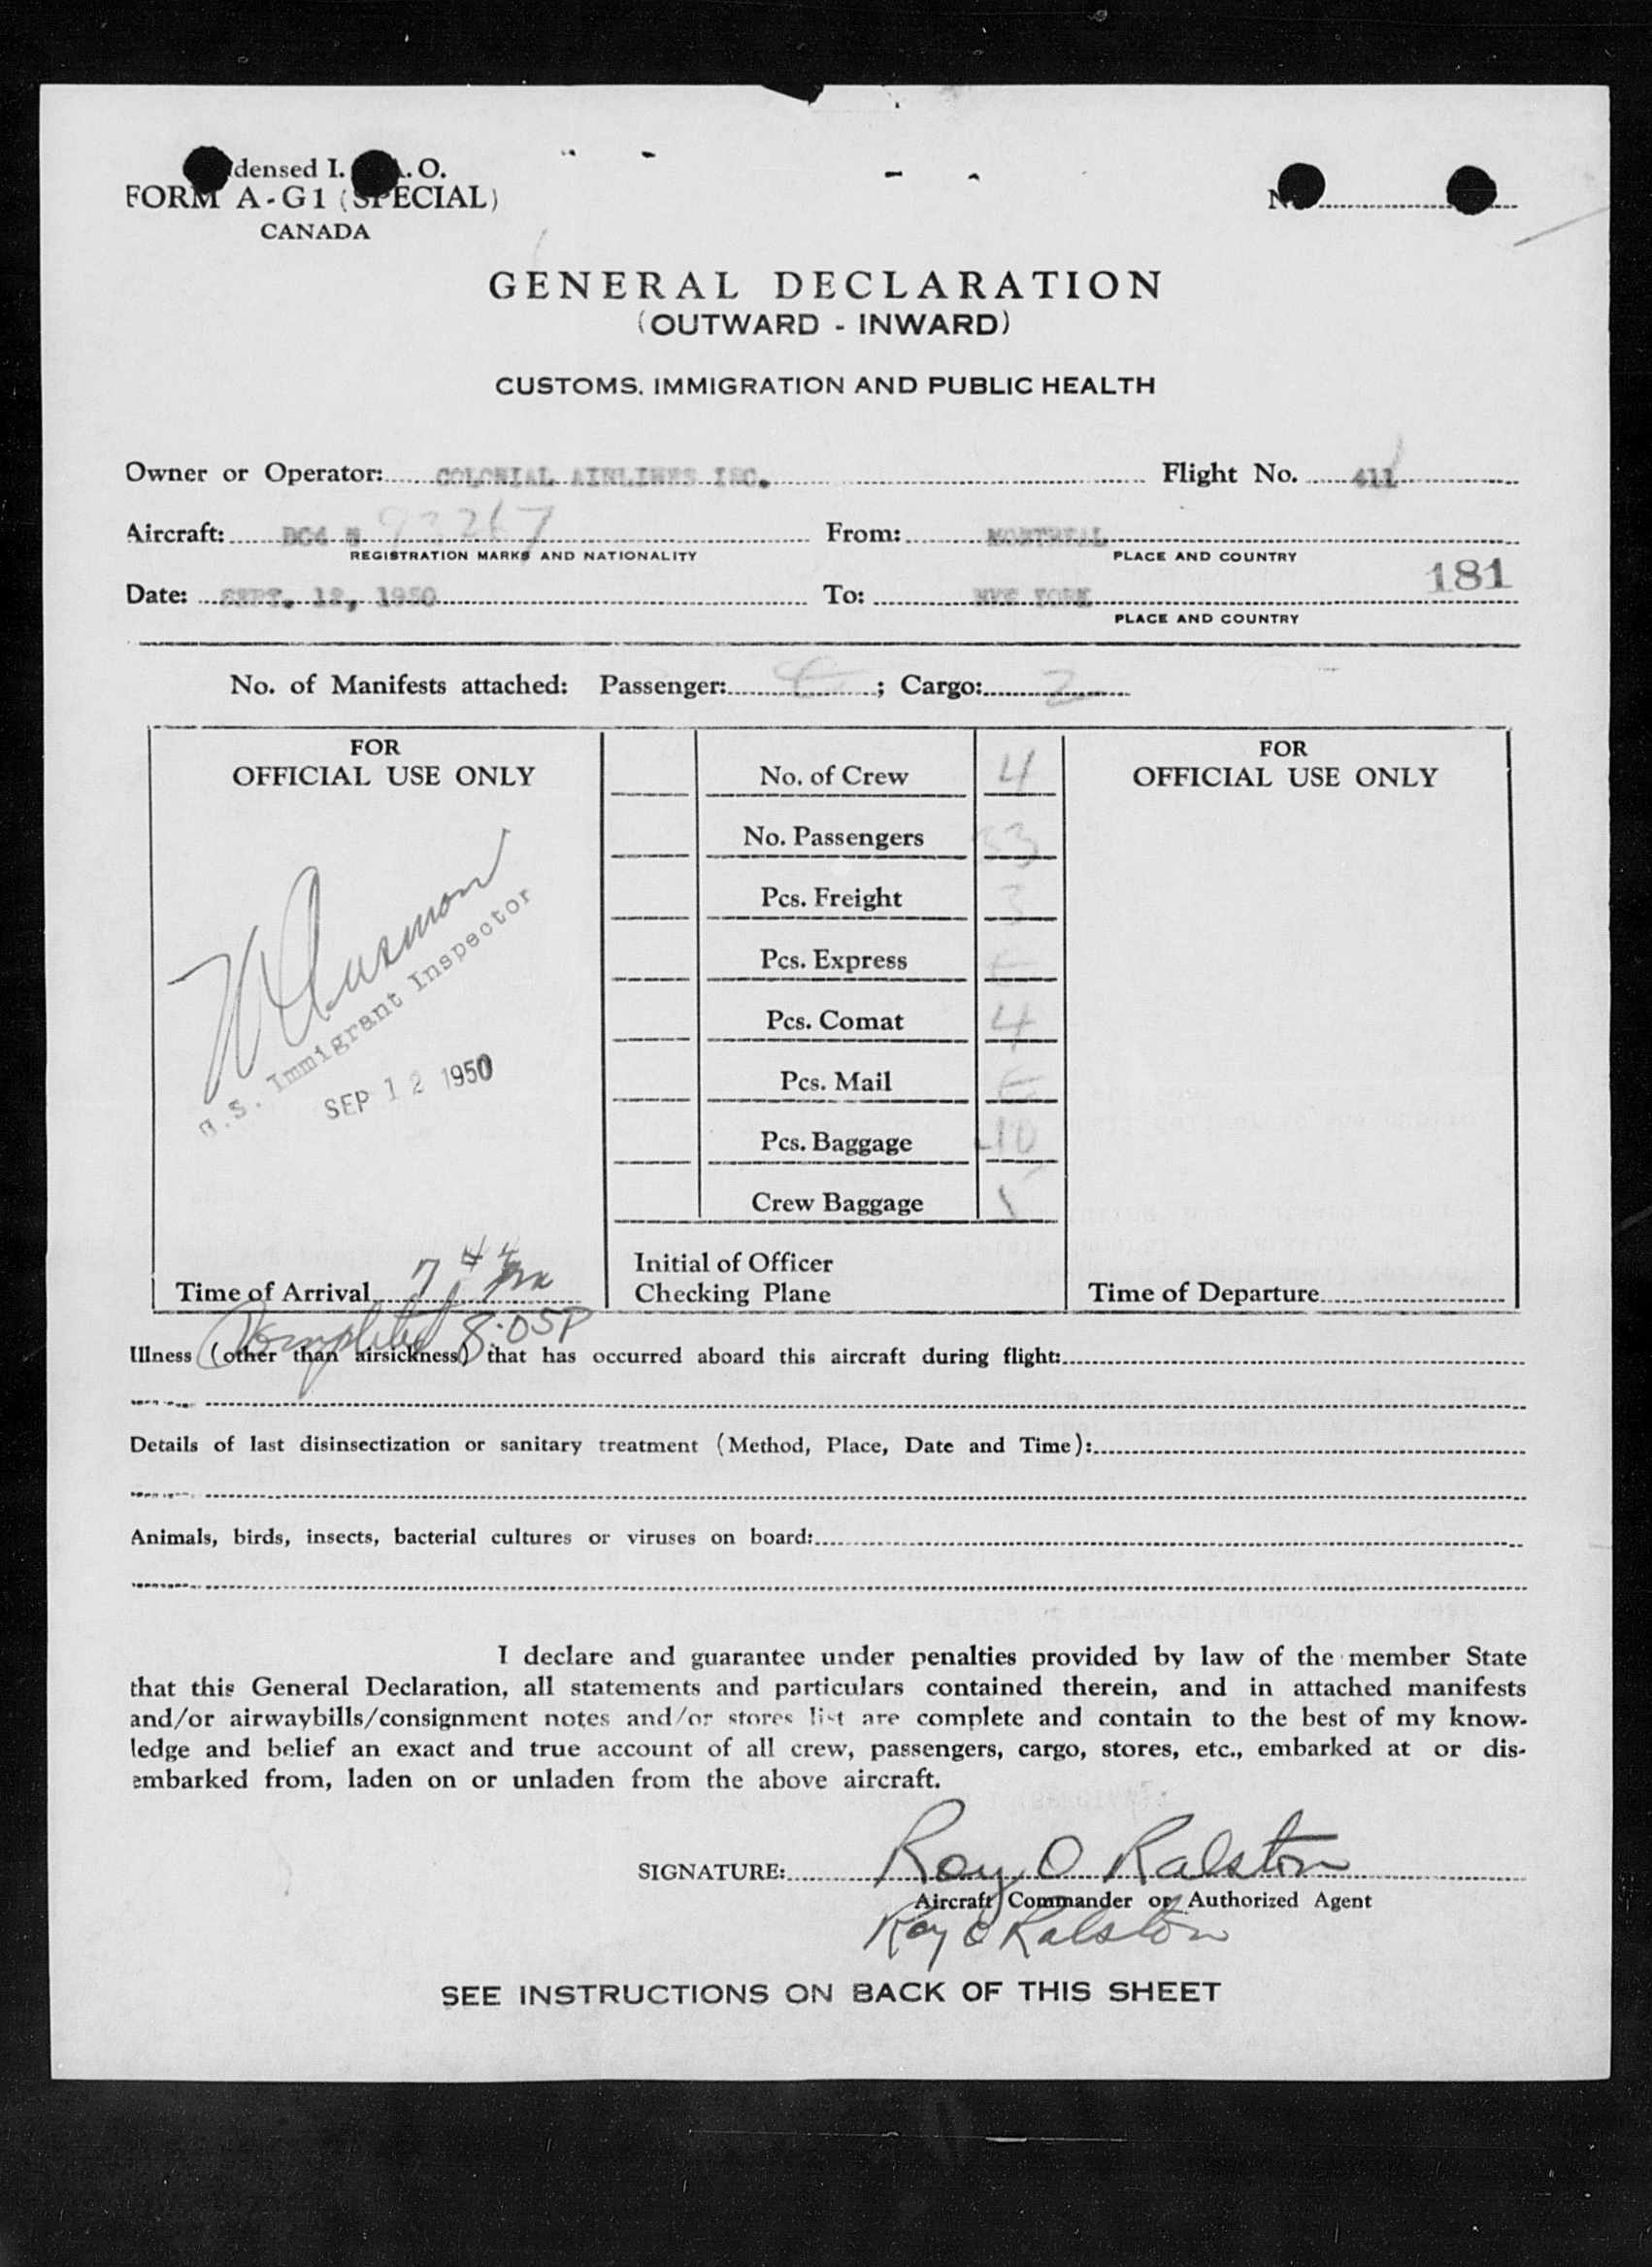 densed I. A. O.
FORM A-G1 (SPECIAL)
CANADA
No.
GENERAL DECLARATION
(OUTWARD - INWARD)
CUSTOMS, IMMIGRATION AND PUBLIC HEALTH
Owner or Operator: COLONIAL AIRLINES INC. Flight No. 411
Aircraft: DC4 N 93267 From: MONTREAL
REGISTRATION MARKS AND NATIONALITY PLACE AND COUNTRY
181
Date: SEPT. 12, 1950 To: NEW YORK
PLACE AND COUNTRY
No. of Manifests attached: Passenger: ; Cargo: 2
FOR
OFFICIAL USE ONLY
U.S. Immigrant Inspector
SEP 12 1950
Time of Arrival 7 44 pm
Completed 8:05P
No. of Crew 4
No. Passengers 33
Pcs. Freight 3
Pcs. Express
Pcs. Comat 4
Pcs. Mail
Pcs. Baggage
Crew Baggage
Initial of Officer
Checking Plane
FOR
OFFICIAL USE ONLY
Time of Departure
Illness (other than airsickness) that has occurred aboard this aircraft during flight:
Details of last disinsectization or sanitary treatment (Method, Place, Date and Time):
Animals, birds, insects, bacterial cultures or viruses on board:
I declare and guarantee under penalties provided by law of the member State
that this General Declaration, all statements and particulars contained therein, and in attached manifests
and/or airwaybills/consignment notes and/or stores list are complete and contain to the best of my know-
ledge and belief an exact and true account of all crew, passengers, cargo, stores, etc., embarked at or dis-
embarked from, laden on or unladen from the above aircraft.
SIGNATURE: Roy O Ralston
Aircraft Commander or Authorized Agent
Roy O Ralston
SEE INSTRUCTIONS ON BACK OF THIS SHEET